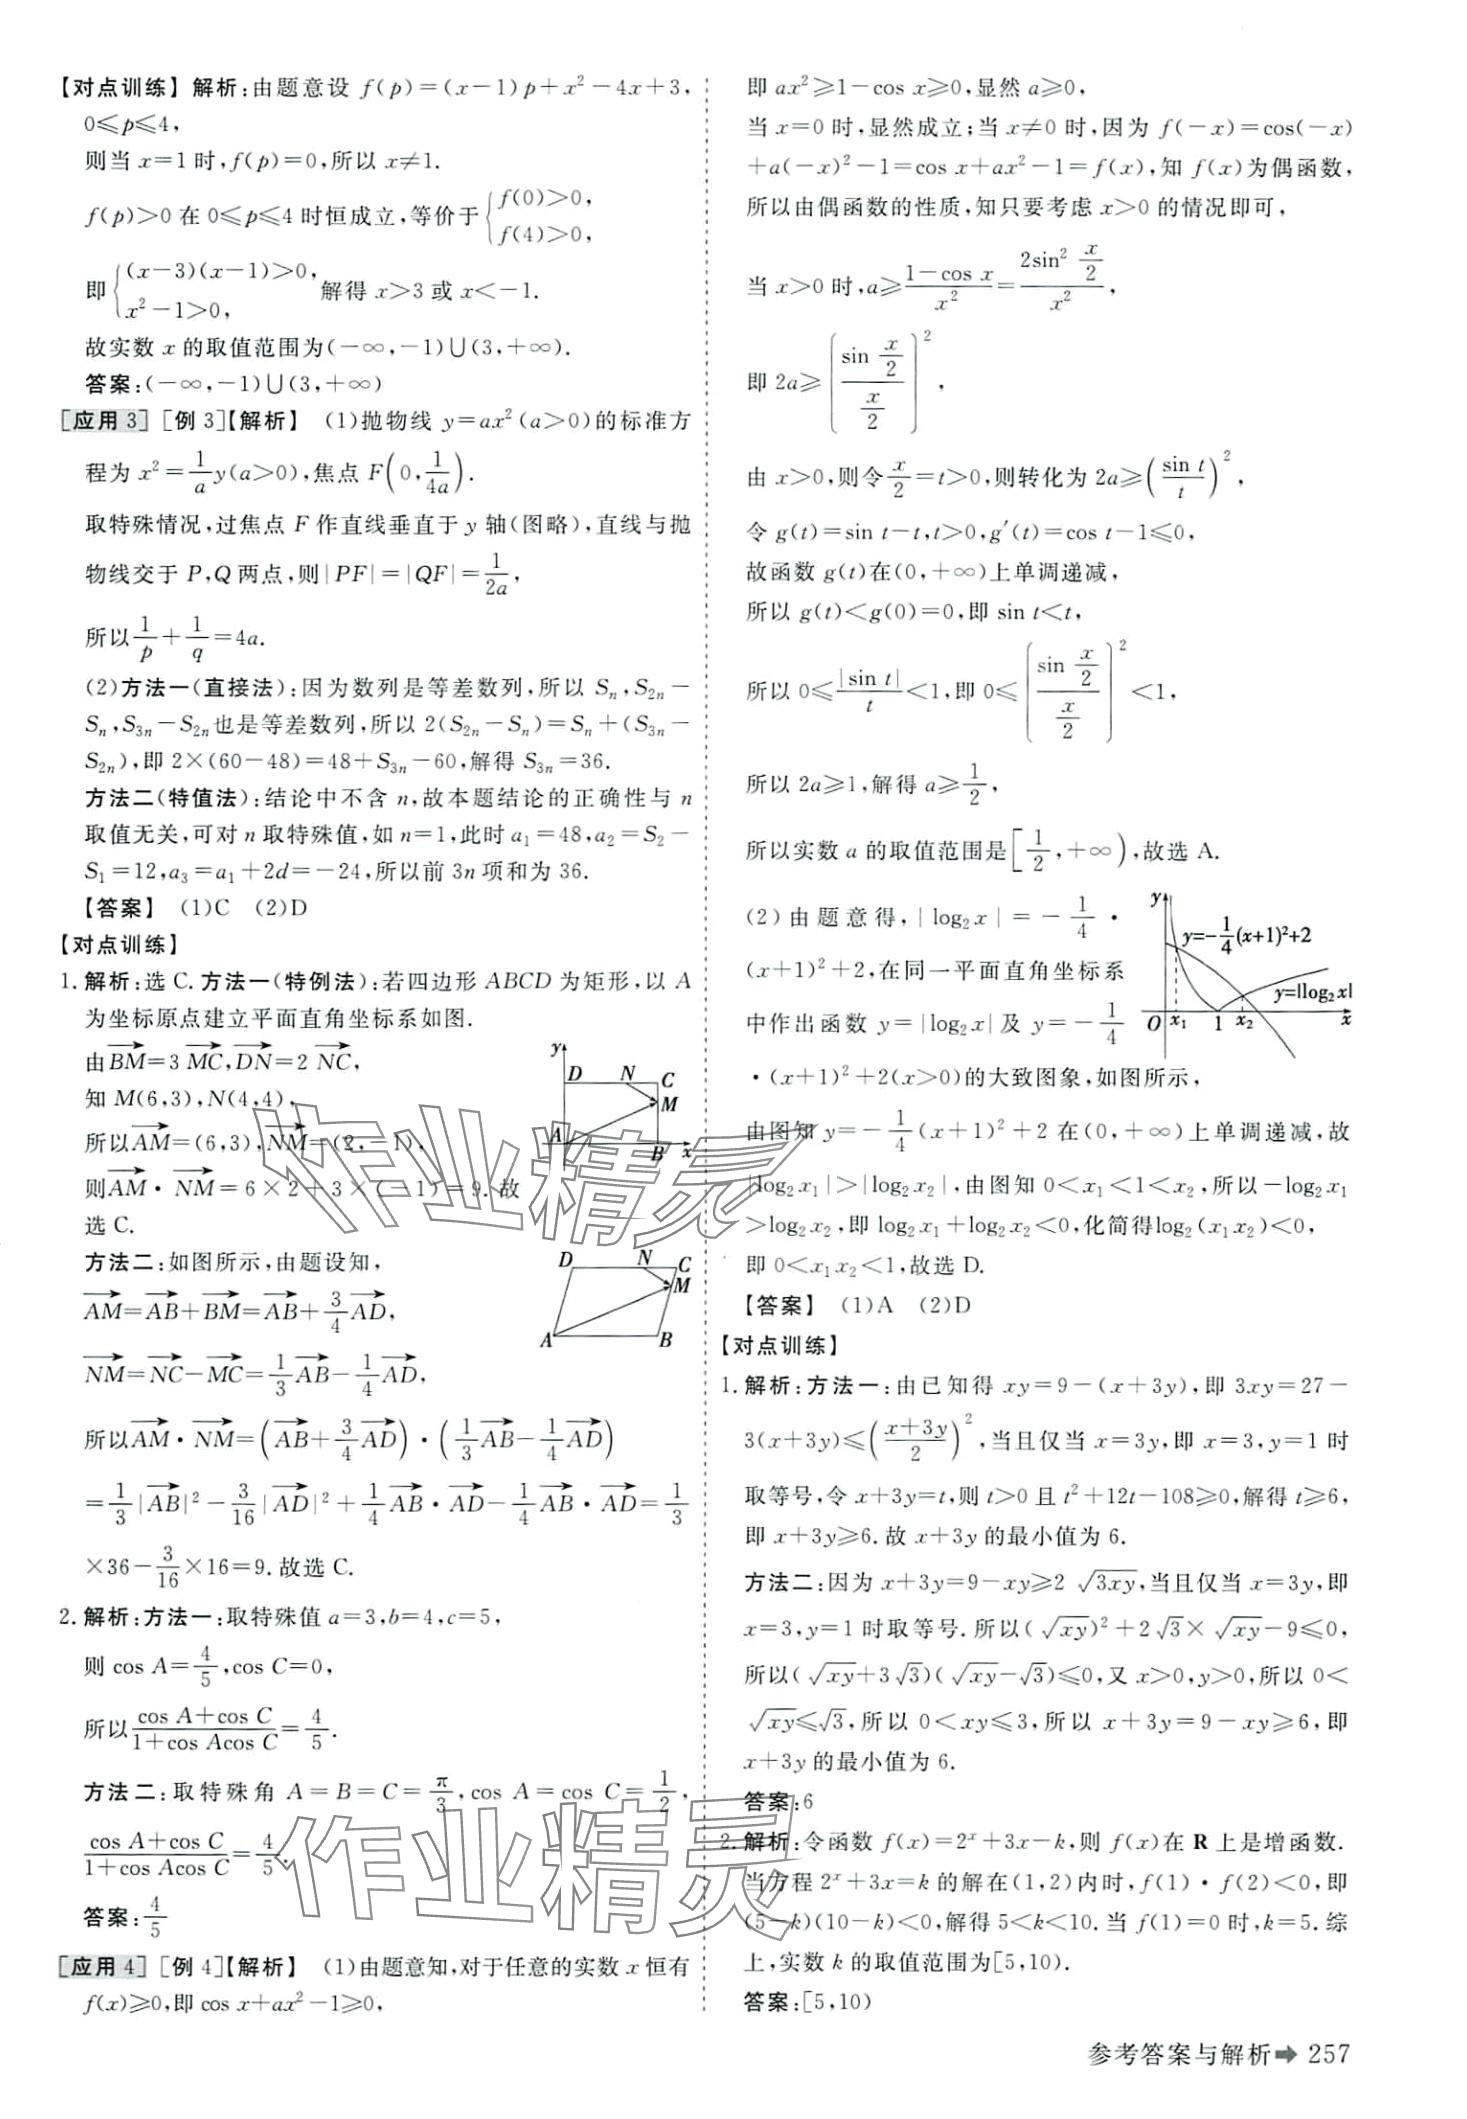 【对点训练】解析:由题意设 f(p)=(x−1)p+x²−4x+3,
0≤p≤4,
则当 x=1 时,f(p)=0,所以 x≠1.
f(p)>0 在 0≤p≤4 时恒成立,等价于{f(0)>0, f(4)>0,
即{(x−3)(x−1)>0, x²−1>0, 解得 x>3 或 x<−1.
故实数 x 的取值范围为(−∞,−1)∪(3,+∞).
答案:(−∞,−1)∪(3,+∞)
[应用3] [例3]【解析】 (1)抛物线 y=ax²(a>0)的标准方
程为 x²=1/a y(a>0),焦点 F(0,1/4a).
取特殊情况,过焦点 F 作直线垂直于 y 轴(图略),直线与抛
物线交于 P,Q 两点,则|PF|=|QF|=1/2a,
所以1/p+1/q=4a.
(2)方法一(直接法):因为数列是等差数列,所以 Sₙ,S₂ₙ−
Sₙ,S₃ₙ−S₂ₙ也是等差数列,所以 2(S₂ₙ−Sₙ)=Sₙ+(S₃ₙ−
S₂ₙ),即 2×(60−48)=48+S₃ₙ−60,解得 S₃ₙ=36.
方法二(特值法):结论中不含 n,故本题结论的正确性与 n
取值无关,可对 n 取特殊值,如 n=1,此时 a₁=48,a₂=S₂−
S₁=12,a₃=a₁+2d=−24,所以前 3n 项和为 36.
【答案】 (1)C (2)D
【对点训练】
1. 解析:选 C. 方法一(特例法):若四边形 ABCD 为矩形,以 A
为坐标原点建立平面直角坐标系如图.
由BM→=3 MC→,DN→=2 NC→,
知 M(6,3),N(4,4),
所以AM→=(6,3),NM→=(2,−1),
则AM→·NM→=6×2+3×(−1)=9.故
选 C.
y D N C M A B x
方法二:如图所示,由题设知,
AM→=AB→+BM→=AB→+3/4 AD→,
NM→=NC→−MC→=1/3 AB→−1/4 AD→,
D N C M A B
所以AM→·NM→=(AB→+3/4 AD→)·(1/3 AB→−1/4 AD→)
=1/3|AB→|²−3/16|AD→|²+1/4 AB→·AD→−1/4 AB→·AD→=1/3
×36−3/16×16=9.故选 C.
2. 解析:方法一:取特殊值 a=3,b=4,c=5,
则 cos A=4/5,cos C=0,
所以(cos A+cos C)/(1+cos Acos C)=4/5.
方法二:取特殊角 A=B=C=π/3,cos A=cos C=1/2,
(cos A+cos C)/(1+cos Acos C)=4/5.
答案:4/5
[应用4] [例4]【解析】 (1)由题意知,对于任意的实数 x 恒有
f(x)≥0,即 cos x+ax²−1≥0,
即 ax²≥1−cos x≥0,显然 a≥0,
当 x=0 时,显然成立;当 x≠0 时,因为 f(−x)=cos(−x)
+a(−x)²−1=cos x+ax²−1=f(x),知 f(x)为偶函数,
所以由偶函数的性质,知只要考虑 x>0 的情况即可,
当 x>0 时,a≥(1−cos x)/x²=(2sin² x/2)/x²,
即 2a≥((sin x/2)/(x/2))²,
由 x>0,则令x/2=t>0,则转化为 2a≥(sin t/t)²,
令 g(t)=sin t−t,t>0,g′(t)=cos t−1≤0,
故函数 g(t)在(0,+∞)上单调递减,
所以 g(t)<g(0)=0,即 sin t<t,
所以 0≤|sin t|/t<1,即 0≤((sin x/2)/(x/2))²<1,
所以 2a≥1,解得 a≥1/2,
所以实数 a 的取值范围是[1/2,+∞),故选 A.
(2)由题意得,|log₂x|=−1/4·
(x+1)²+2,在同一平面直角坐标系
中作出函数 y=|log₂x|及 y=−1/4
·(x+1)²+2(x>0)的大致图象,如图所示,
y y=−1/4(x+1)²+2 y=|log₂x| O x₁ 1 x₂ x
由图知 y=−1/4(x+1)²+2 在(0,+∞)上单调递减,故
|log₂x₁|>|log₂x₂|,由图知 0<x₁<1<x₂,所以−log₂x₁
>log₂x₂,即 log₂x₁+log₂x₂<0,化简得log₂(x₁x₂)<0,
即 0<x₁x₂<1,故选 D.
【答案】 (1)A (2)D
【对点训练】
1. 解析:方法一:由已知得 xy=9−(x+3y),即 3xy=27−
3(x+3y)≤((x+3y)/2)²,当且仅当 x=3y,即 x=3,y=1 时
取等号,令 x+3y=t,则 t>0 且 t²+12t−108≥0,解得 t≥6,
即 x+3y≥6.故 x+3y 的最小值为 6.
方法二:因为 x+3y=9−xy≥2√(3xy),当且仅当 x=3y,即
x=3,y=1 时取等号.所以(√(xy))²+2√3×√(xy)−9≤0,
所以(√(xy)+3√3)(√(xy)−√3)≤0,又 x>0,y>0,所以 0<
√(xy)≤√3,所以 0<xy≤3,所以 x+3y=9−xy≥6,即
x+3y 的最小值为 6.
答案:6
2. 解析:令函数 f(x)=2ˣ+3x−k,则 f(x)在 R 上是增函数.
当方程 2ˣ+3x=k 的解在(1,2)内时,f(1)·f(2)<0,即
(5−k)(10−k)<0,解得 5<k<10.当 f(1)=0 时,k=5.综
上,实数 k 的取值范围为[5,10).
答案:[5,10)
参考答案与解析➡257
作业精灵
作业精灵